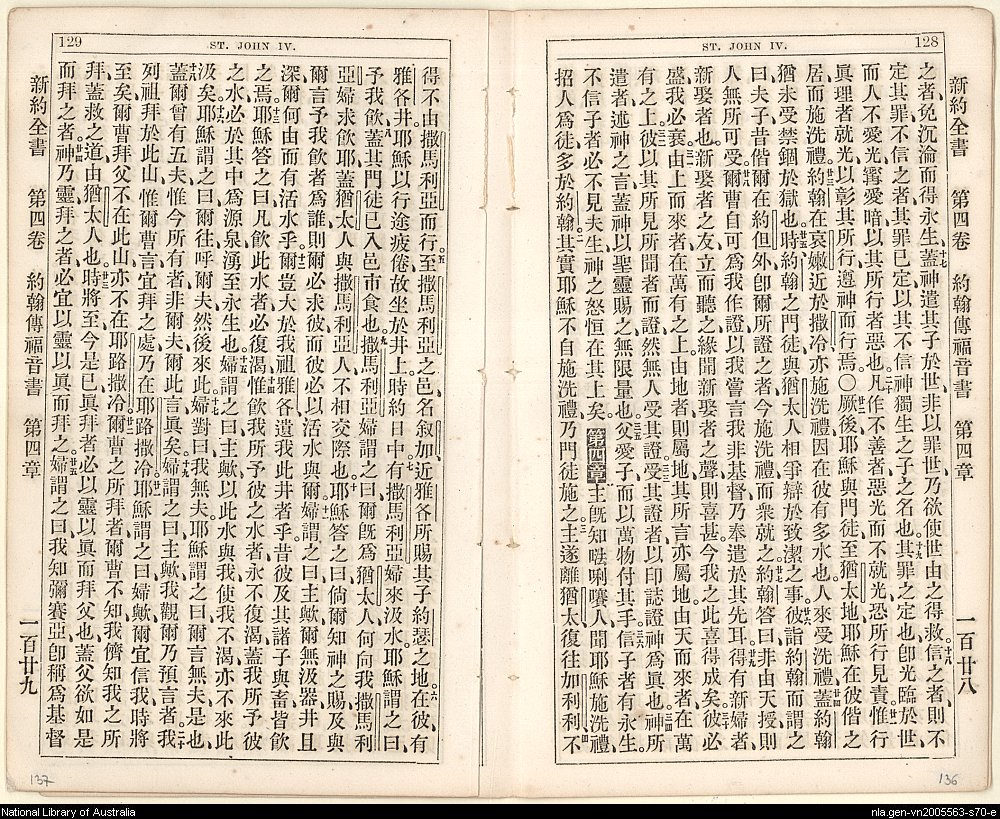 ST. JOHN IV. 128
新約全書 第四卷 約翰傳福音書 第四章 一百廿八
之者、免沉淪而得永生、十七蓋神遣其子於世、非以罪世、乃欲使世由之得救、十八信之者、則不
定其罪、不信之者、其罪已定、以其不信神獨生之子之名也、十九其罪之定也、卽光臨於世、
而人不愛光、寗愛暗、以其所行者惡也、二十凡作不善者、惡光而不就光、恐所行見責、廿一惟行
眞理者就光、以彰其所行、遵神而行焉、〇廿二厥後耶穌與門徒至猶太地、耶穌在彼偕之
居而施洗禮、廿三約翰在哀嫩近於撒冷、亦施洗禮、因在彼有多水也、人來受洗禮、廿四蓋約翰
猶未受禁錮於獄也、廿五時約翰之門徒與猶太人相爭辯於致潔之事、廿六彼詣約翰而謂之
曰夫子、昔偕爾在約但外、卽爾所證之者、今施洗禮、而衆就之、廿七約翰答曰、非由天授、則
人無所可受、廿八爾曹自可爲我作證、以我嘗言我非基督、乃奉遣於其先耳、廿九得有新婦者、
新娶者也、新娶者之友、立而聽之、緣聞新娶者之聲、則喜甚、今我之此喜得成矣、三十彼必
盛、我必衰、三一由上而來者、在萬有之上、由地者、則屬地、其所言亦屬地、由天而來者、在萬
有之上、三二彼以其所見所聞者而證、然無人受其證、三三受其證者、以印誌證神爲眞也、三四神所
遣者、述神之言、蓋神以聖靈賜之、無限量也、三五父愛子、而以萬物付其手、三六信子者、有永生、
不信子者、必不見夫生、神之怒恒在其上矣、 第四章 主旣知唎人聞耶穌施洗禮、
招人爲徒、多於約翰、二其實耶穌不自施洗禮、乃門徒施之、三主遂離猶太、復往加利利、四不
129 ST. JOHN IV.
得不由撒馬利亞而行、五至撒馬利亞之邑、名叙加、近雅各所賜其子約瑟之地、六在彼有
雅各井、耶穌以行途疲倦、故坐於井上、時約日中、七有撒馬利亞婦來汲水、耶穌謂之曰、
予我飲、八蓋其門徒已入邑市食也、九撒馬利亞婦謂之曰、爾旣爲猶太人、何向我撒馬利
亞婦求飲耶、蓋猶太人與撒馬利亞人不相交際也、十耶穌答之曰、倘爾知神之賜、及與
爾言予我飲者爲誰、則爾必求彼、而彼必以活水與爾、十一婦謂之曰、主歟、爾無汲器、井且
深、爾何由而有活水乎、十二爾豈大於我祖雅各、遺我此井者乎、昔彼及其諸子與畜皆飲
之焉、十三耶穌答之曰、凡飲此水者必復渴、十四惟飲我所予彼之水者、永不復渴、蓋我所予彼
之水、必於其中爲源泉、湧至永生也、十五婦謂之曰、主歟、以此水與我、使我不渴、亦不來此
汲矣、十六耶穌謂之曰、爾往呼爾夫、然後來此、十七婦對曰、我無夫、耶穌謂之曰、爾言無夫是也、
十八蓋爾曾有五夫、惟今所有者、非爾夫、爾此言眞矣、十九婦謂之曰、主歟、我觀爾乃預言者、二十我
列祖拜於此山、惟爾曹言宜拜之處、乃在耶路撒冷、廿一耶穌謂之曰、婦歟、爾宜信我、時將
至矣、爾曹拜父、不在此山、亦不在耶路撒冷、廿二爾曹之所拜者、爾曹不知、我儕知我之所
拜、蓋救之道、由猶太人也、廿三時將至、今是已、眞拜者、必以靈以眞而拜父也、蓋父欲如是
而拜之者、廿四神乃靈、拜之者、必宜以靈以眞而拜之、廿五婦謂之曰、我知彌賽亞、卽稱爲基督
新約全書 第四卷 約翰傳福音書 第四章 一百廿九
137
136
National Library of Australia
nla.gen-vn2005563-s70-e